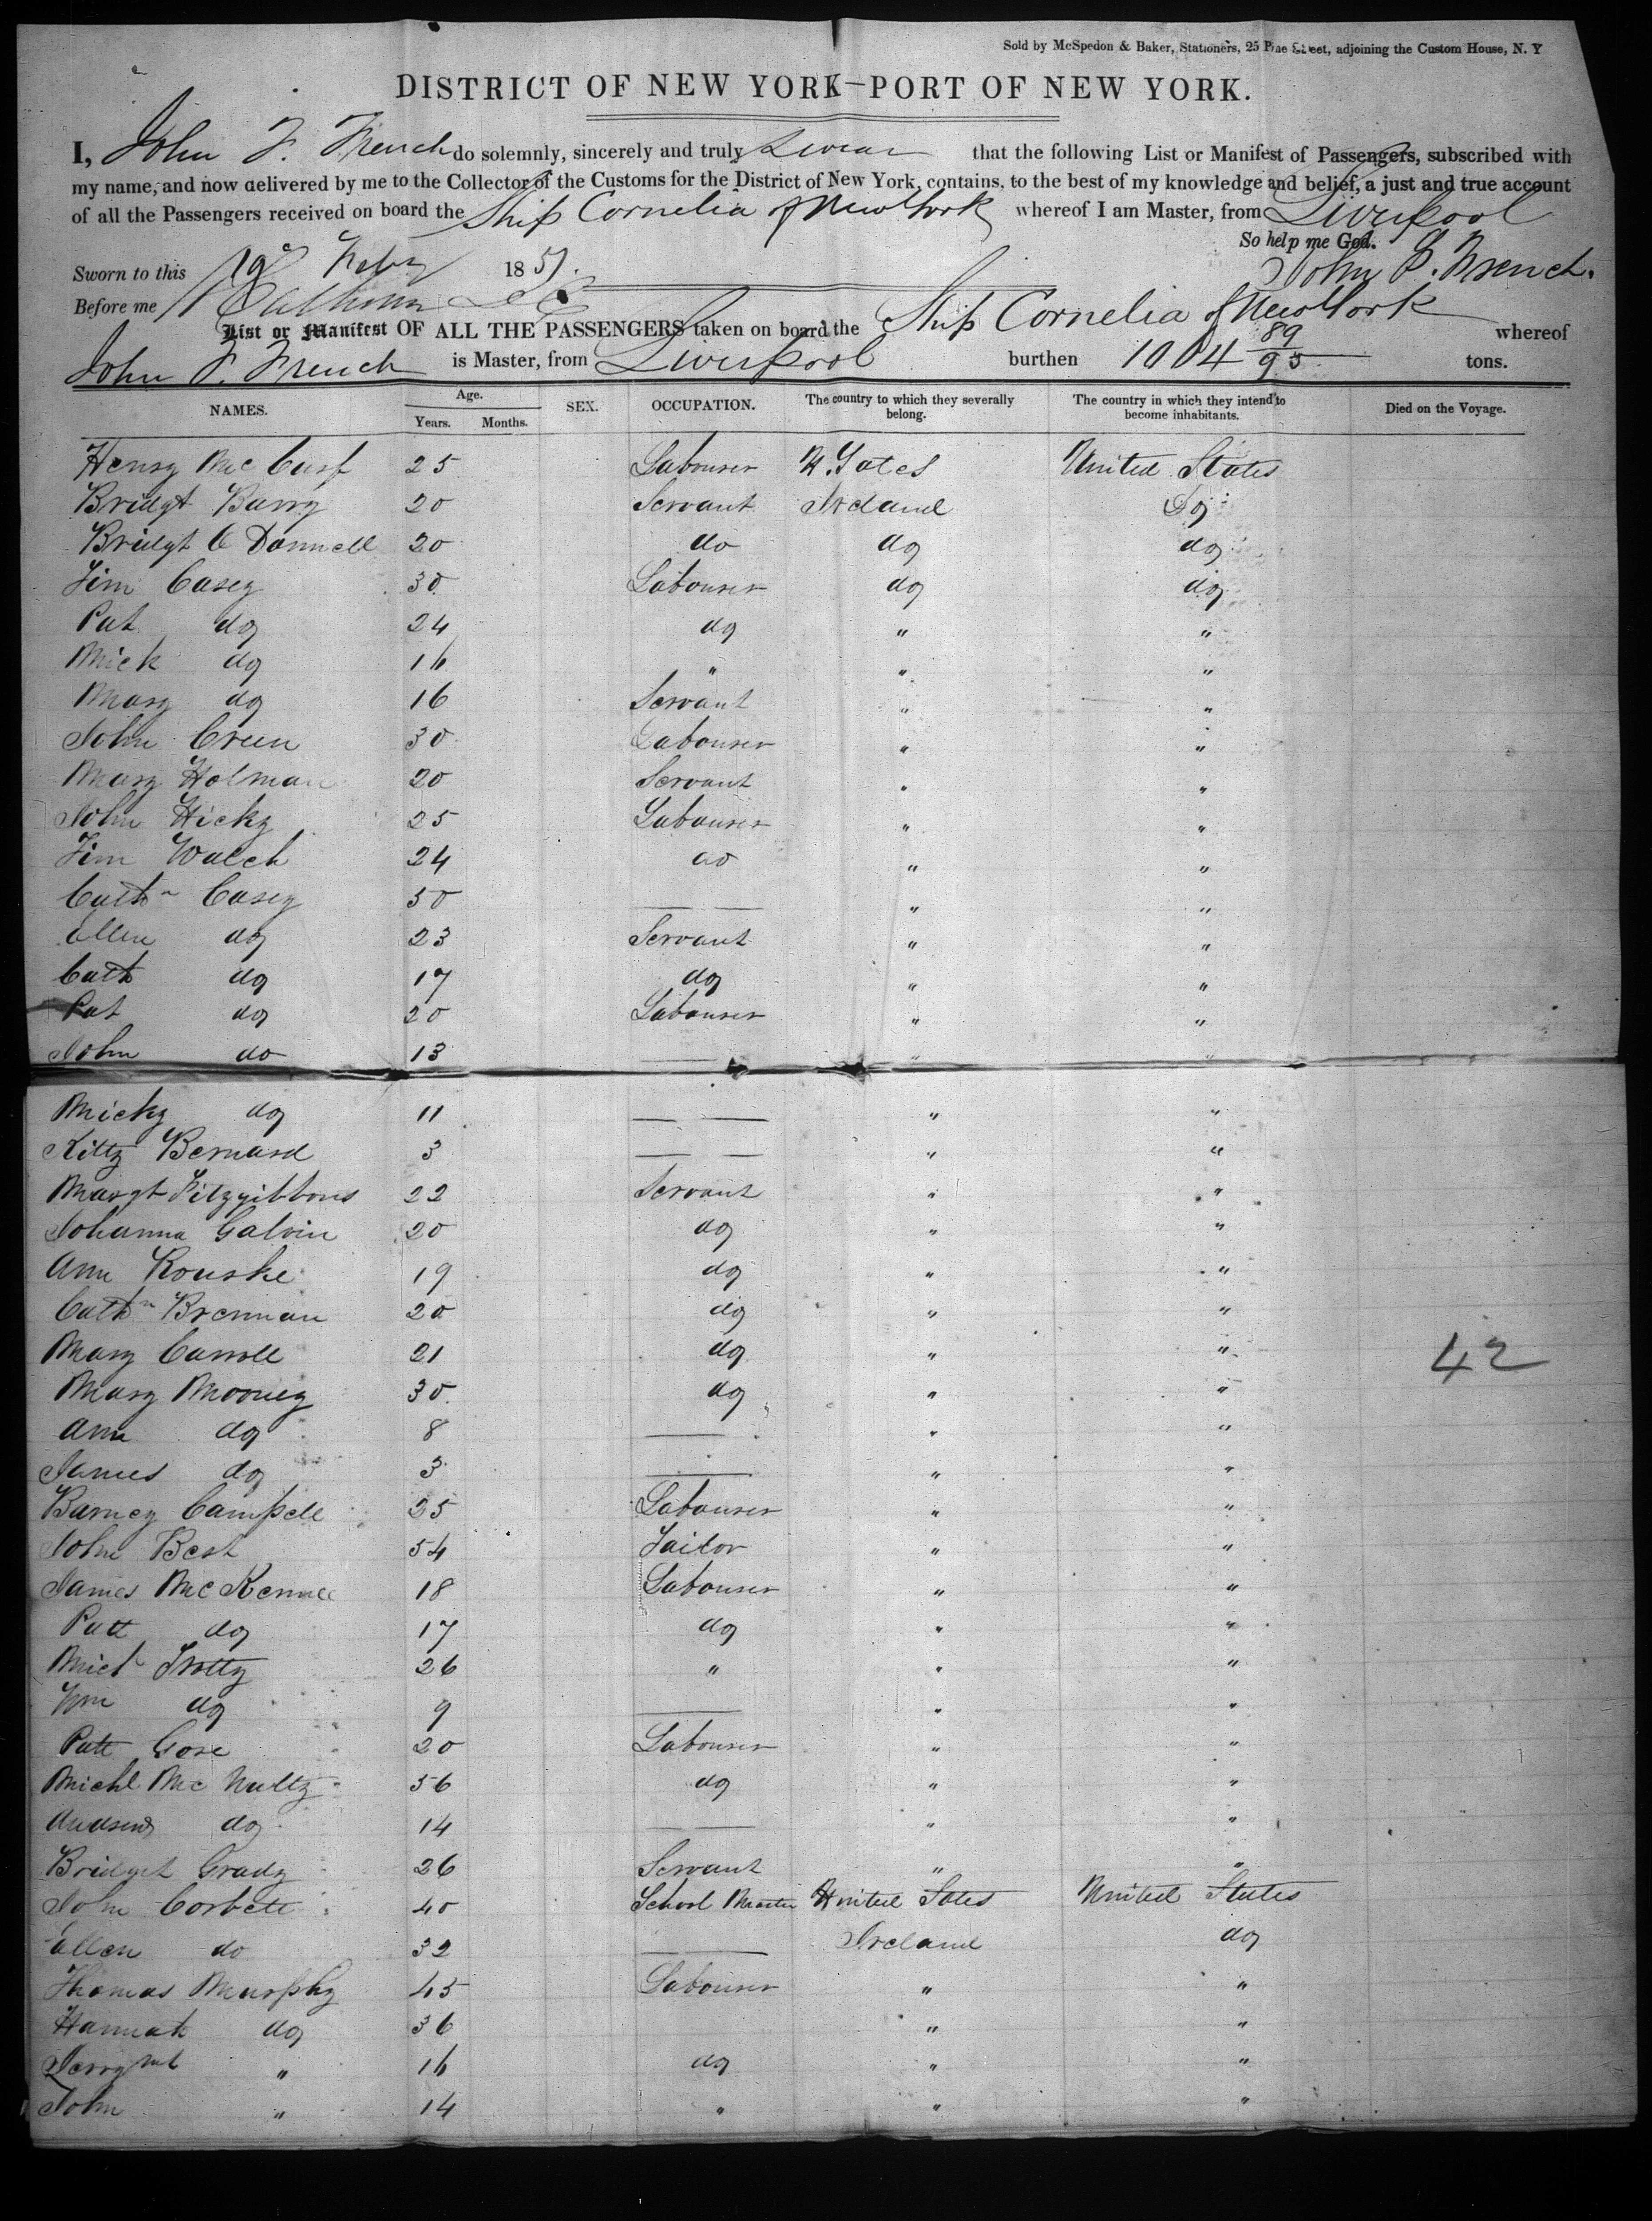 Sold by McSpedon & Baker, Stationers, 25 Pine Street, adjoining the Custom House, N. Y
DISTRICT OF NEW YORK—PORT OF NEW YORK.
I, John F. French do solemnly, sincerely and truly Swear that the following List or Manifest of Passengers, subscribed with
my name, and now delivered by me to the Collector of the Customs for the District of New York, contains, to the best of my knowledge and belief, a just and true account
of all the Passengers received on board the Ship Cornelia of New York whereof I am Master, from Liverpool
So help me God.
Sworn to this 19 Feby 1851. John F. French.
Before me
List or Manifest OF ALL THE PASSENGERS taken on board the Ship Cornelia of New York whereof
John F. French is Master, from Liverpool burthen 1004 89/95 tons.
NAMES. Age. Years. Months. SEX. OCCUPATION. The country to which they severally belong. The country in which they intend to become inhabitants. Died on the Voyage.
Henry 25 Labourer U. States United States
Bridgt Barry 20 Servant Ireland Do
Bridgt O Donnell 20 do do do
Tim Casey 30 Labourer do do
Pat do 24 do " "
Mick do 16 " " "
Mary do 16 Servant " "
John Green 30 Labourer " "
Mary Holman 20 Servant " "
John Hicky 25 Labourer " "
Tim Walch 24 do " "
Cathn Casey 50 — — " "
Ellen do 23 Servant " "
Cath do 17 do " "
Pat do 20 Labourer " "
John do 13 — " "
Micky do 11 — — " "
Kitty Bernard 3 — — " "
Margt Fitzgibbons 22 Servant " "
Johanna Galvin 20 do " "
Ann Rourke 19 do " "
Cathn Brennan 20 do " "
Mary Carroll 21 do " "
42
Mary Mooney 30 do " "
Ann do 8 — " "
James do 3 — " "
Barney Campell 25 Labourer " "
John Best 54 Tailor " "
James McKenna 18 Labourer " "
Patt do 17 do " "
Michl 26 " " "
Wm do 9 — " "
Patt Gore 20 Labourer " "
Michl McNulty 56 do " "
Andrew do 14 — — " "
Bridget Grady 26 Servant " "
John Corbett 40 School Master United States United States
Ellen do 32 — Ireland do
Thomas Murphy 45 Labourer " "
Hannah do 36 " "
" 16 do " "
John " 14 " " "